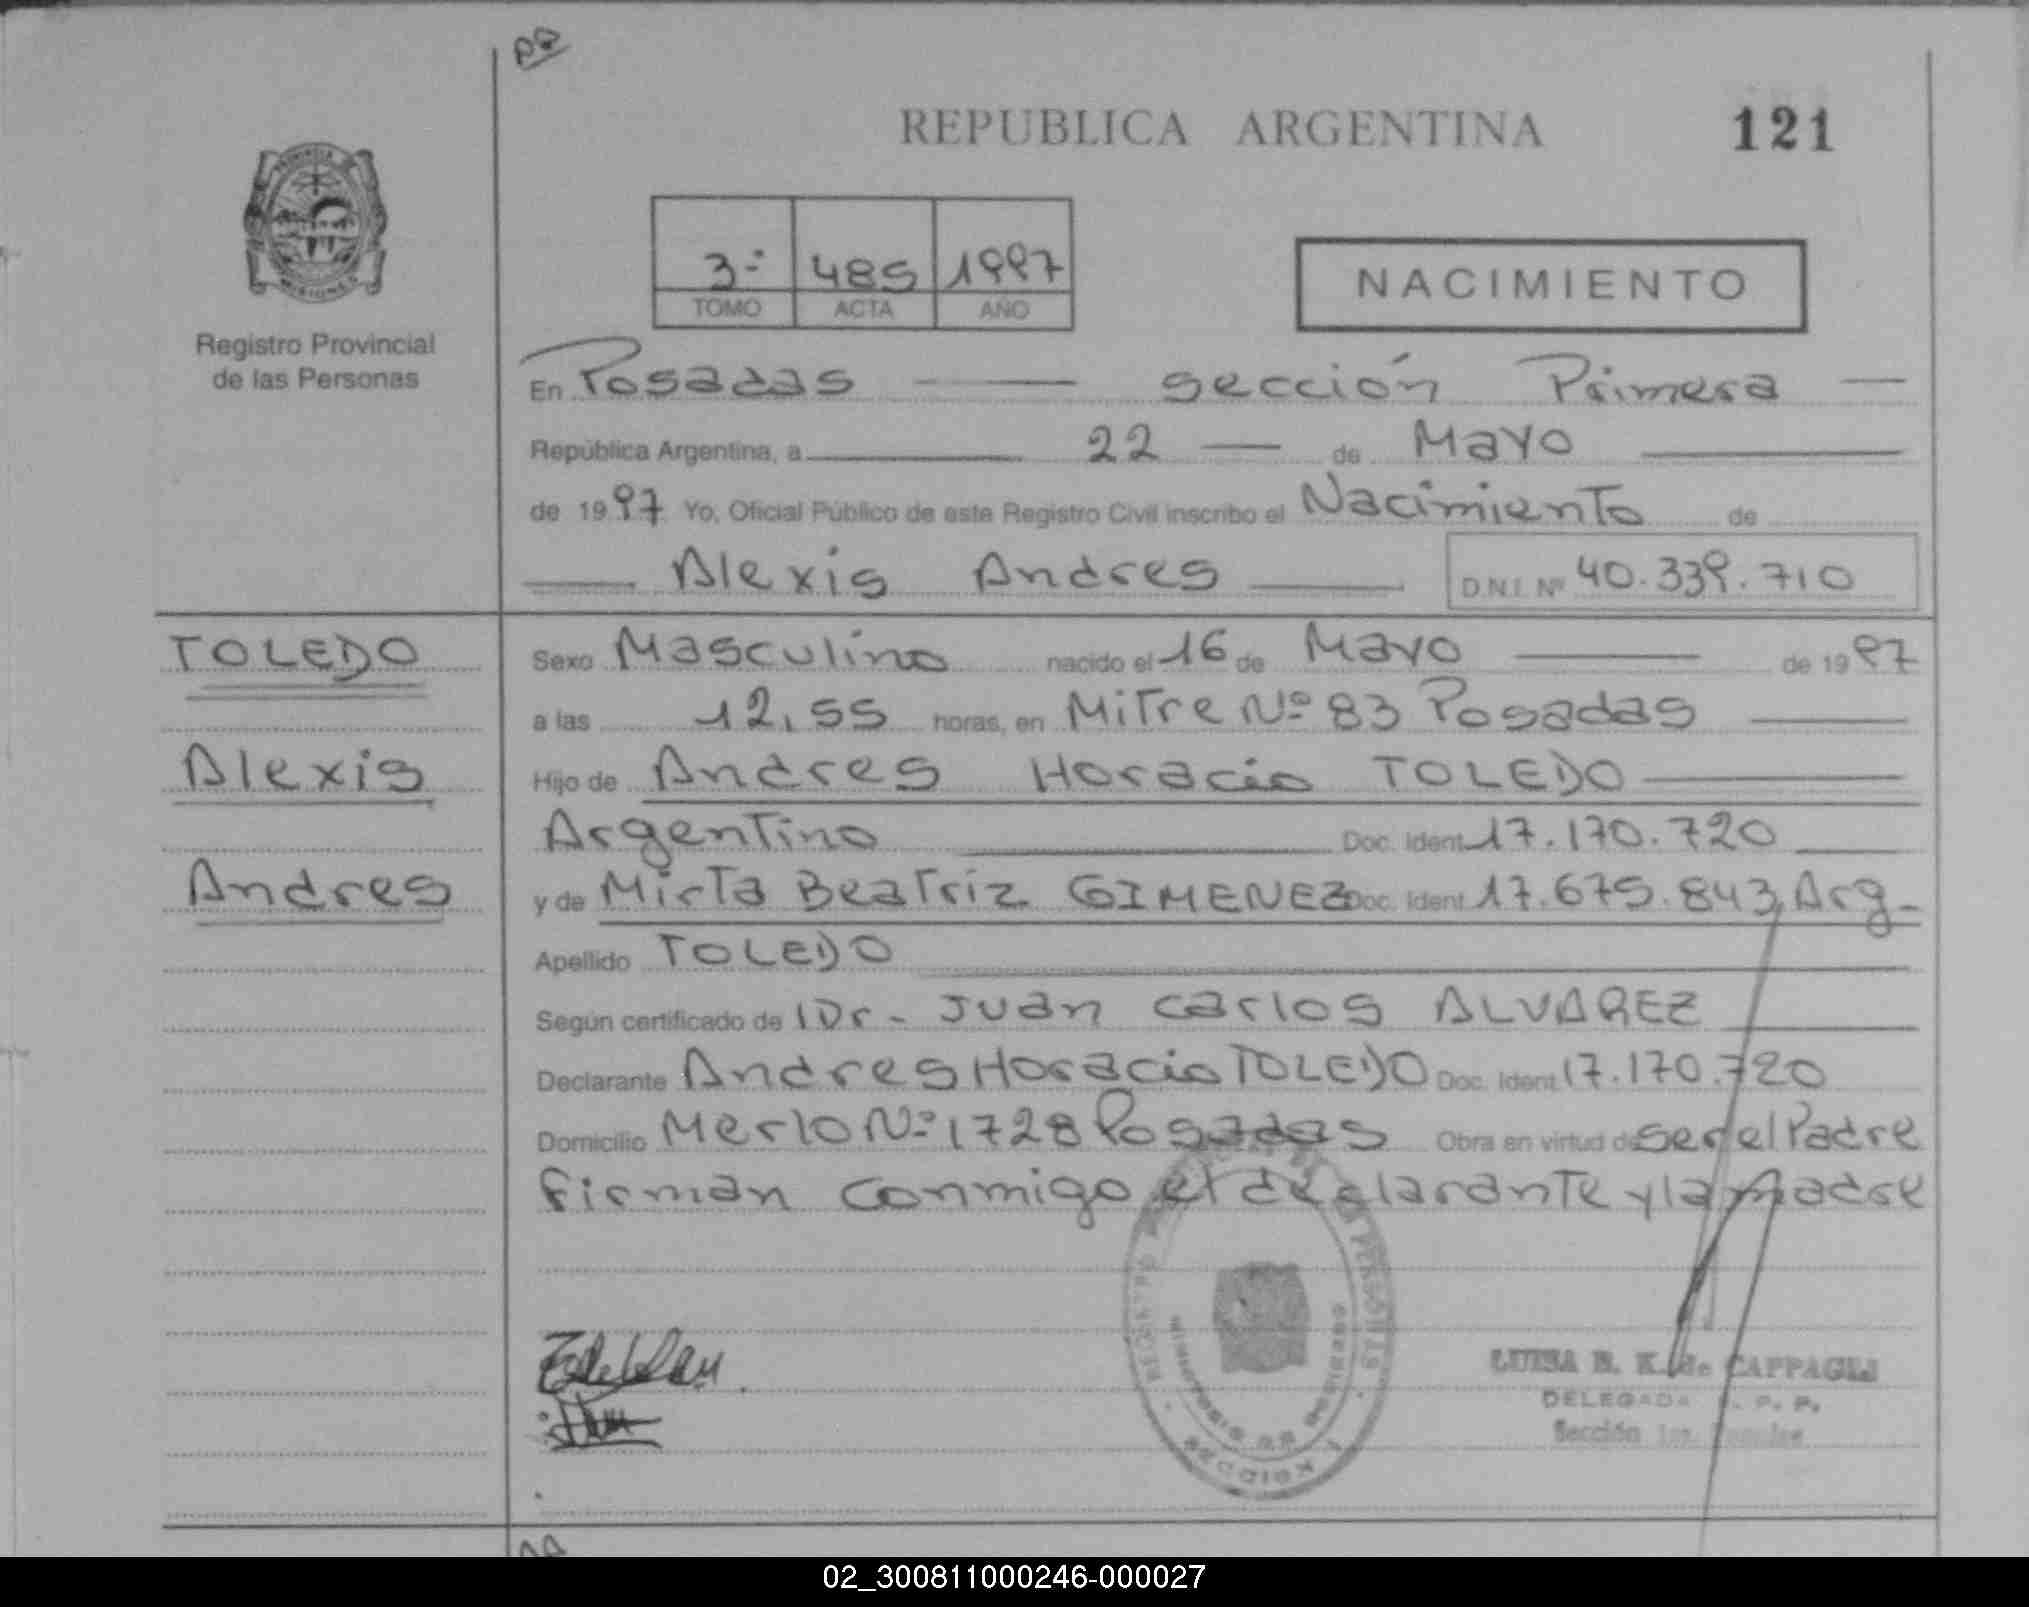 REPUBLICA ARGENTINA
121
PROVINCIA DE
MISIONES
Registro Provincial
de las Personas
3º 485 1997
TOMO ACTA AÑO
NACIMIENTO
En Posadas sección Primera
República Argentina, a 22 de Mayo
de 1997 Yo, Oficial Público de este Registro Civil inscribo el Nacimiento de
Alexis Andres D.N.I. Nº 40.339.710
TOLEDO
Alexis
Andres
Sexo Masculino nacido el 16 de Mayo de 1997
a las 12,55 horas, en Mitre Nº 83 Posadas
Hijo de Andres Horacio TOLEDO
Argentino Doc. Ident 17.170.720
y de Mirta Beatriz GIMENEZ Doc. Ident 17.675.843, Arg-
Apellido TOLEDO
Según certificado de Dr- Juan Carlos ALVAREZ
Declarante Andres Horacio TOLEDO Doc. Ident 17.170.720
Domicilio Merlo Nº 1728 Posadas Obra en virtud de ser el Padre
firman conmigo el declarante y la Madre
LUISA K. de CAPPAGLI
DELEGADA P. P.
Sección
SECCION 1
02_300811000246-000027